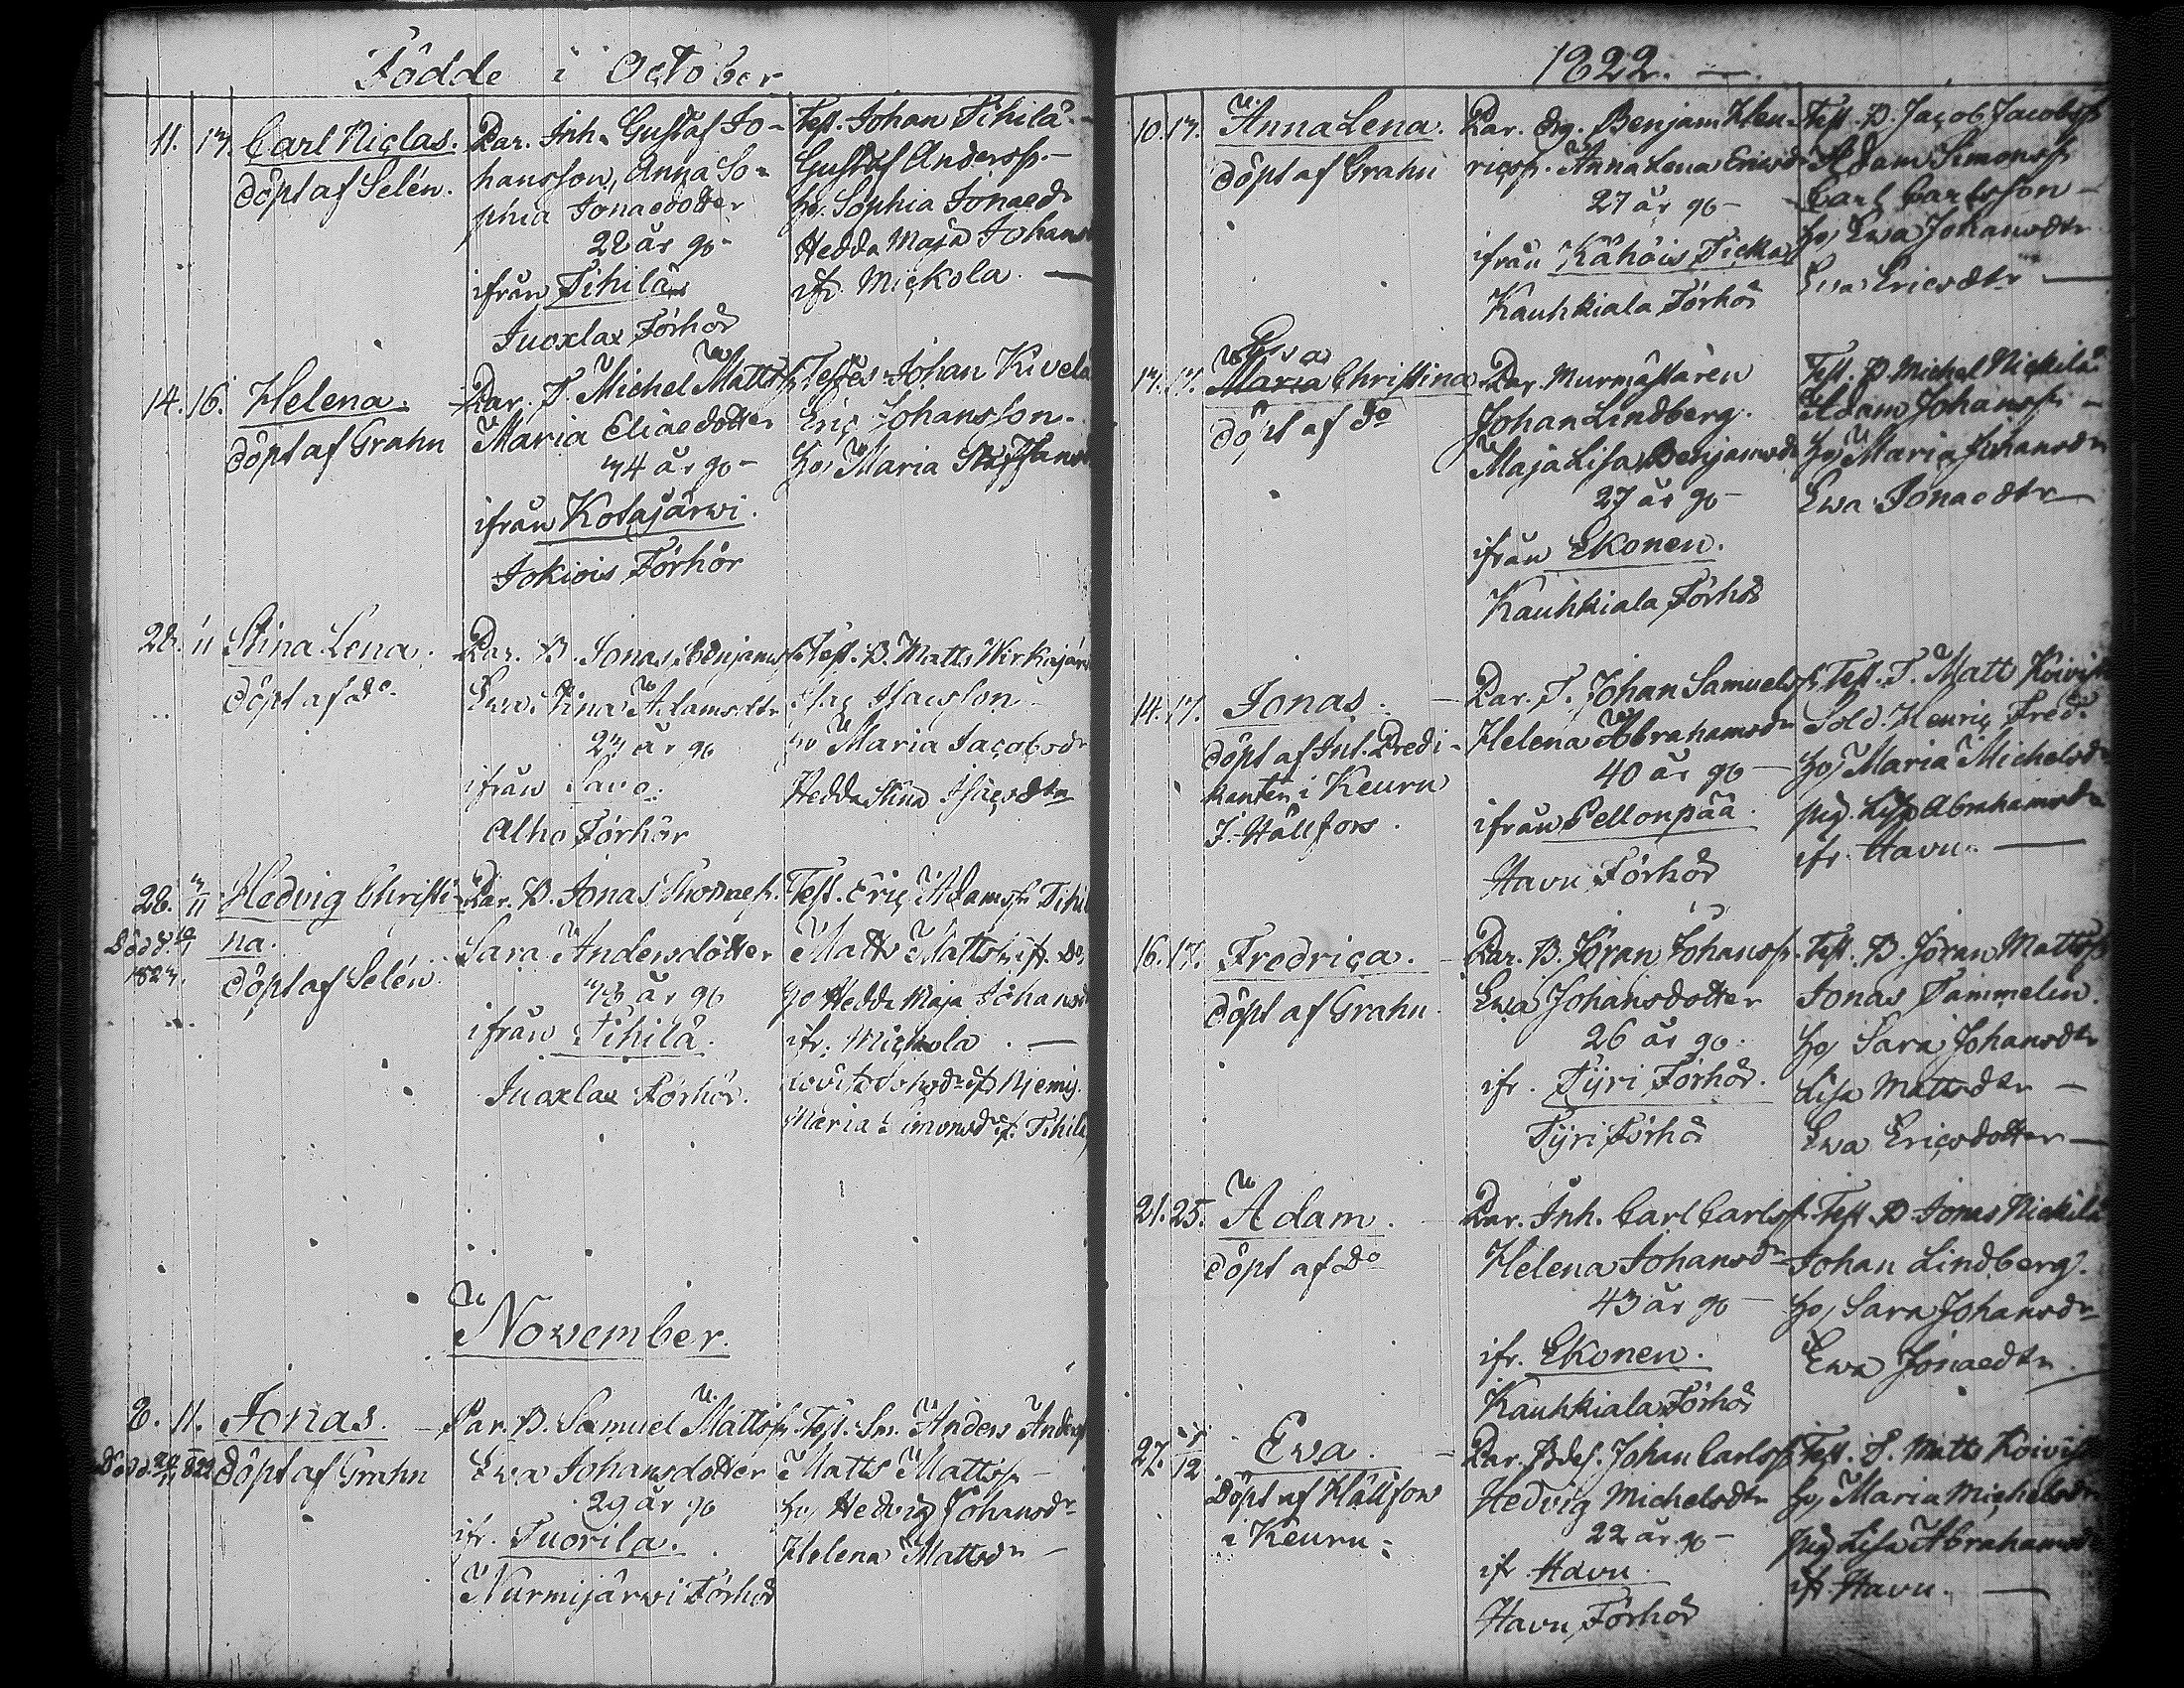 Födde i October
11. 13. Carl Niclas.
döpt af Selén.
Par. Inh. Gustaf Jo-
hansson, Anna So-
phia Jonaedotter
22 år go-
ifrån Tihilä
Juoxlax Förhör
Test. Johan Tihilä
Gustaf Anderss. -
ho, Sophia Jonaedr
Hedda Maja Johans
ifr. Mickola. —
14. 16. Helena.
döpt af Grahn
Par. T. Michel Matts
Maria Eliaedotter
44 år go-
ifrån Kotajärwi.
Jokiois Förhör
Testes Johan Kivelä
Eric Johansson.
ho, Maria Staffans
28. 11 Stina Lena.
döpt af do
Par. B. Jonas Benjams
Ewa Stina Adamsdtr
23 år go
ifrån Savo.
Alho Förhör
Test. B. Matts Wirkajär
Isac Isacsson -
ho Maria Jacobsdr
Hedda Stina Isacsdtr
28. 3/11 Hedvig Christi-
na.
döpt af Selén.
Död d.
1823.
Par. B. Jonas Thomaess.
Sara Andersdotter
43 år go
ifrån Tihilä.
Juoxlax Förhör.
Test. Eric Adamss. Tihi
Matts Mattss. ifr. do,
ho Hedda Maja Johans
ifr. Mickola. —
Maria Simonsd. if. Tihilä
November.
8. 11. Jonas.
döpt af Grahn
Par. B. Samuel Mattss.
Ewa Johansdotter
29 år go
ifr. Tuorila.
Nurmijärwi Förhör
Test. Sn. Anders Anders
Matts Mattss. -
ho, Hedvig Johansdr
Helena Mattsdr -
1822. —
10. 13. Anna Lena.
döpt af Grahn
Par. Dg. Benjam. Hen-
ricss. Anna Lena Ericsd
27 år go-
ifrån Kähöis, Ticka
Kauhkiala Förhör
Test. B. Jacob Jacobss
Adam Simonss.
Carl Carlsson -
ho, Ewa Johansdtr
Ewa Ericsdtr —
Eva
13. 17. Maria Christina
döpt af do
Par. Murmästaren
Johan Lindberg.
Maja Lisa Benjamsdr
27 år go-
ifrån Ekonen.
Kauhkiala Förhör
Test. B. Michel Nickilä
Adam Johanss. -
ho, Maria Johansdr
Ewa Jonaedtr —
14. 17. Jonas.
döpt af Int. Predi-
kanten i Keuru
J. Hällfors.
Par. T. Johan Samuelss
Helena Abrahamsdr
40 år go-
ifrån Pellonpää.
Havu Förhör
Test. T. Matt Koivist
Sold. Henric Fred.
ho, Maria Michelsdr
pig. Lisa Abrahamsdr
ifr. Havu. —
16. 17. Fredrica.
döpt af Grahn.
Par. B. Jöran Johanss.
Ewa Johansdotter
26 år go.
ifr. Tyri Förhör.
Tyri Förhör
Test. B. Jöran Mattss
Jonas Tammelin.
ho, Sara Johansdtr
Lisa Mattsdtr -
Ewa Ericsdotter —
21. 25. Adam.
döpt af do
Par. Inh. Carl Carlss.
Helena Johansdr
43 år go-
ifr. Ekonen.
Kauhkiala Förhör
Test. B. Jonas Nickilä
Johan Lindberg.
ho, Sara Johansdr
Ewa Jonaedtr. —
27. Ewa.
döpt af Hällfors
i Keuru.
Par. Bdes. Johan Carlss
Hedvig Michelsdtr
22 år go-
ifr. Havu.
Havu Förhör
Test. T. Matts Koivist
ho, Maria Michelsdr
pig Lisa Abrahamsd
ifr. Havu. —